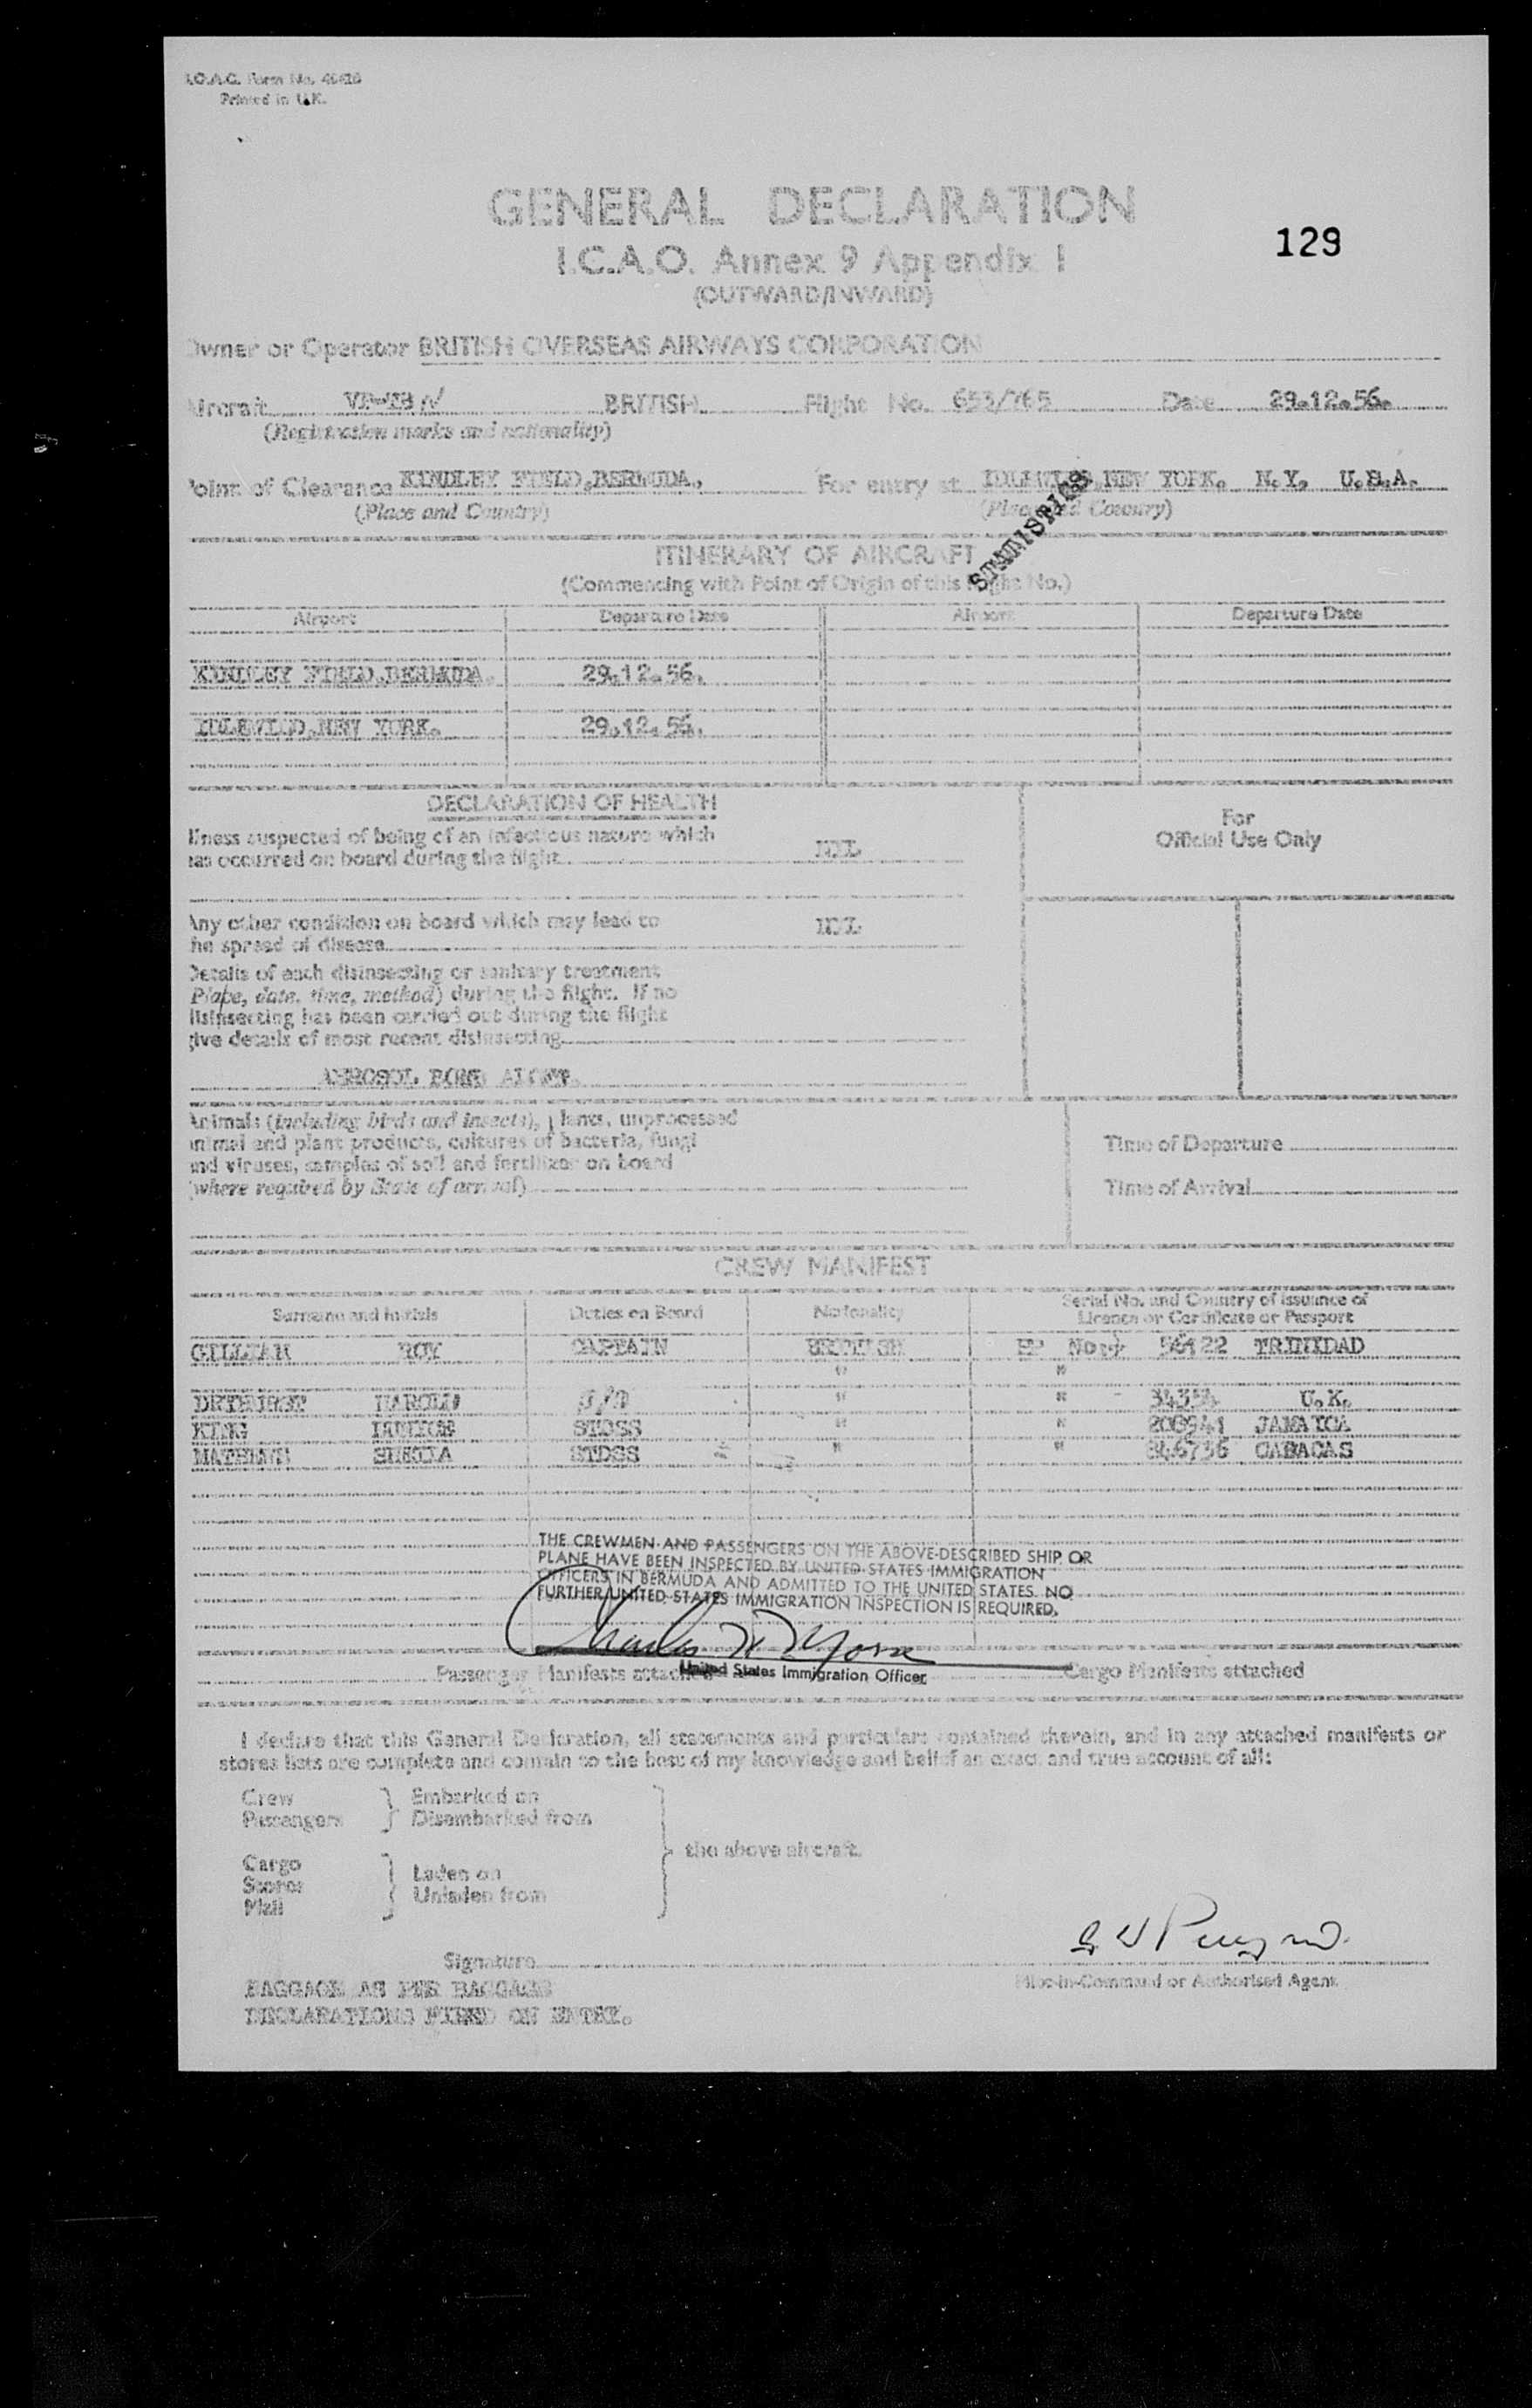 Printed in U.K.
GENERAL DECLARATION
129
I.C.A.O. Annex 9 Appendix I
(OUTWARD/INWARD)
Owner or Operator BRITISH OVERSEAS AIRWAYS CORPORATION
Aircraft BRITISH Flight No. 653/765 Date 29.12.56.
(Registration marks and nationality)
Point of Clearance KINDLEY FIELD,BERMUDA, For entry at IDLEWILD,NEW YORK. N.Y. U.S.A.
(Place and Country) (Place and Country)
STATISTICS
ITINERARY OF AIRCRAFT
(Commencing with Point of Origin of this Flight No.)
Airport Departure Date Airport Departure Date
KINDLEY FIELD,BERMUDA. 29.12.56.
IDLEWILD,NEW YORK. 29.12.56.
DECLARATION OF HEALTH
For
Official Use Only
Illness suspected of being of an infectious nature which
has occurred on board during the flight NIL
Any other condition on board which may lead to
the spread of disease NIL
Details of each disinsecting or sanitary treatment
(Place, date, time, method) during the flight. If no
disinsecting has been carried out during the flight
give details of most recent disinsecting
AEROSOL BOMB
Animals (including birds and insects), plants, unprocessed
animal and plant products, cultures of bacteria, fungi
and viruses, samples of soil and fertilizer on board
(where required by State of arrival)
Time of Departure
Time of Arrival
CREW MANIFEST
Surname and Initials Duties on Board Nationality Serial No. and Country of Issuance of
Licence or Certificate or Passport
ROY CAPTAIN BRITISH PP No: 56122 TRINIDAD
" "
HAROLD " " U.K.
KING STDSS " " JAMAICA
MATHEWS STDSS " " CARACAS
THE CREWMEN AND PASSENGERS ON THE ABOVE-DESCRIBED SHIP OR
PLANE HAVE BEEN INSPECTED BY UNITED STATES IMMIGRATION
OFFICERS IN BERMUDA AND ADMITTED TO THE UNITED STATES. NO
FURTHER UNITED STATES IMMIGRATION INSPECTION IS REQUIRED.
Charles
United States Immigration Officer
Passenger Manifests attached Cargo Manifests attached
I declare that this General Declaration, all statements and particulars contained therein, and in any attached manifests or
stores lists are complete and contain to the best of my knowledge and belief an exact and true account of all:
Crew } Embarked on
Passengers } Disembarked from
the above aircraft.
Cargo
Stores } Laden on
Mail } Unladen from
Signature
Pilot-in-Command or Authorised Agent
BAGGAGE AS PER BAGGAGE
DECLARATIONS FILED ON ENTRY.